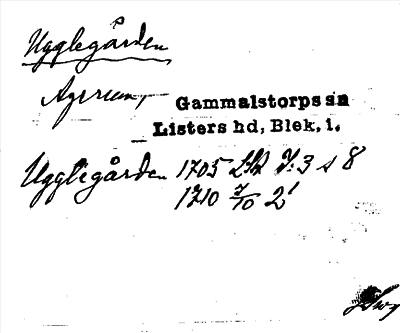 Ugglegården
Agerum, Gammalstorps sn
Listers hd, Blek. l.
Ugglegården 1705 LSA I:3 s 8
1710 7/10 2'